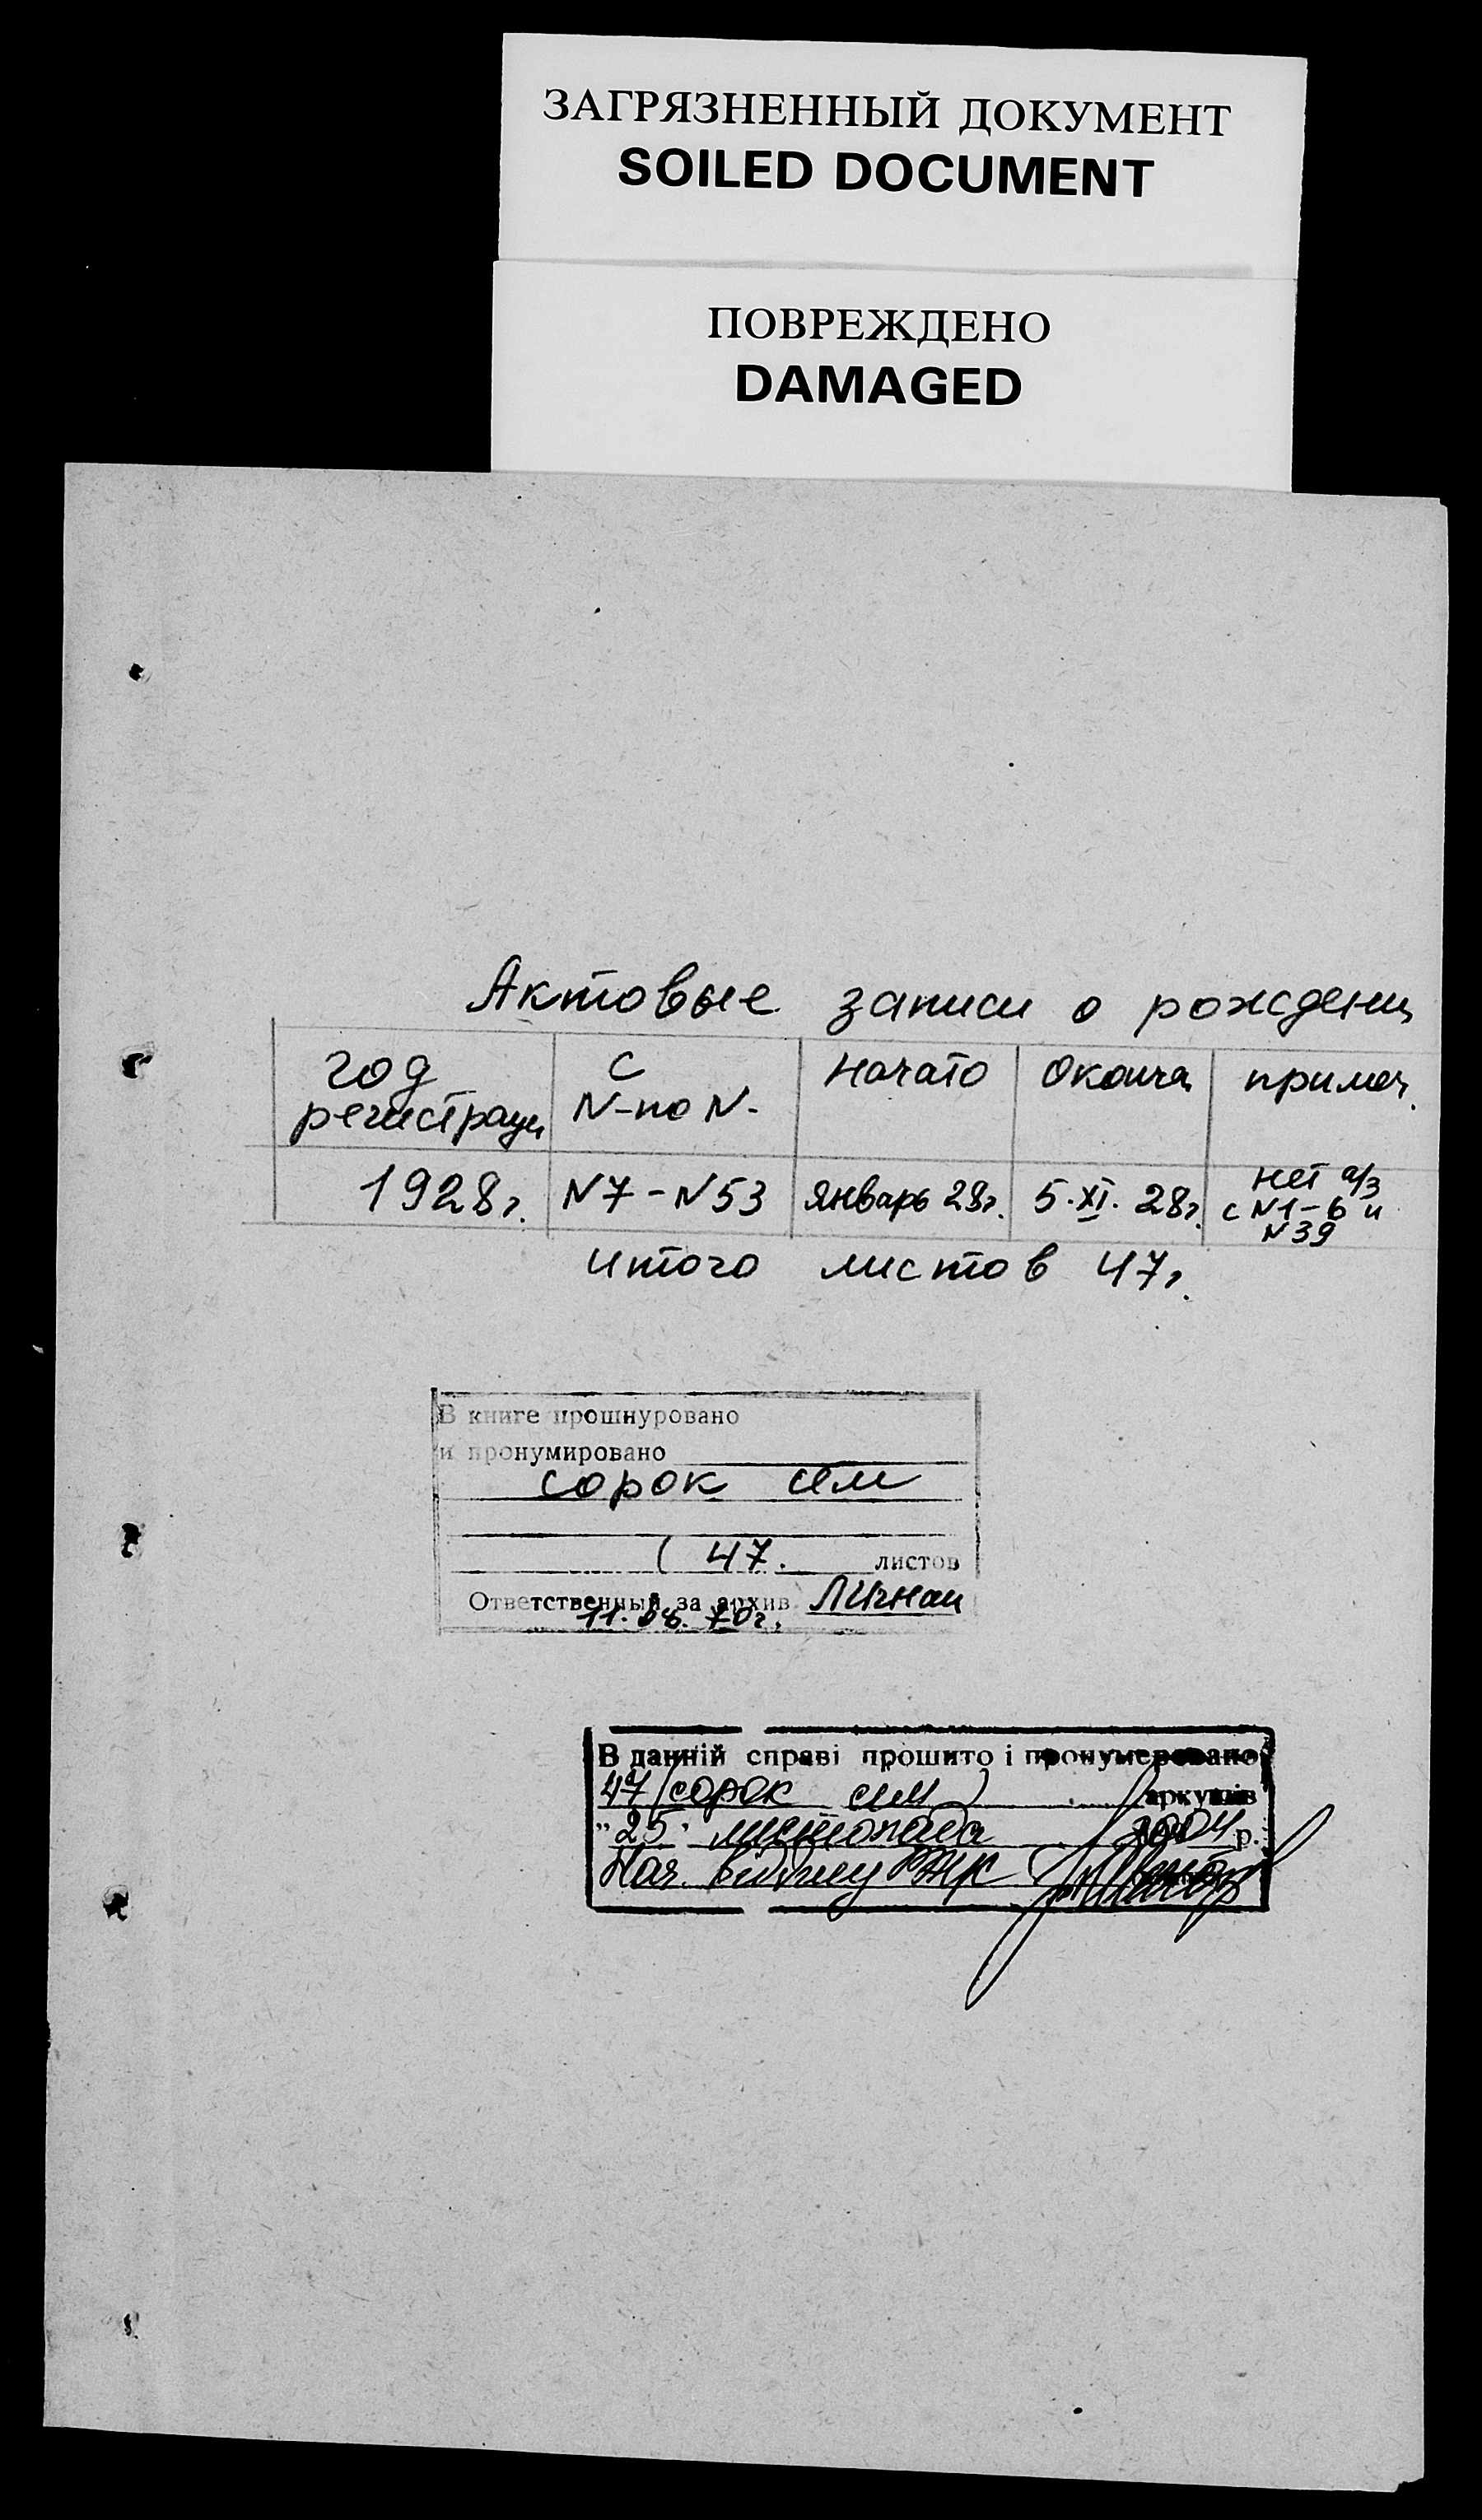 ЗАГРЯЗНЕННЫЙ ДОКУМЕНТ
SOILED DOCUMENT
ПОВРЕЖДЕНО
DAMAGED
Актовые записи о рождени
год регистраци
с N-по N-
начато
оконча
примеч.
1928г.
N7-N53
январь 28г.
5.XI.28г.
нет а/з
с N1-6 и
N39
итого листов 47.
В книге прошнуровано
и пронумировано
сорок сем
( 47. листов
Ответственный за архив
11.08.70г.
В данній справі прошито і пронумеровано
47 (сорок сім) аркушів
"25" листопада 2004 р.
Нач. відділу РАЦС